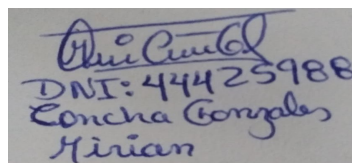 DNI: 44425988
Concha Gonzales
Mirian